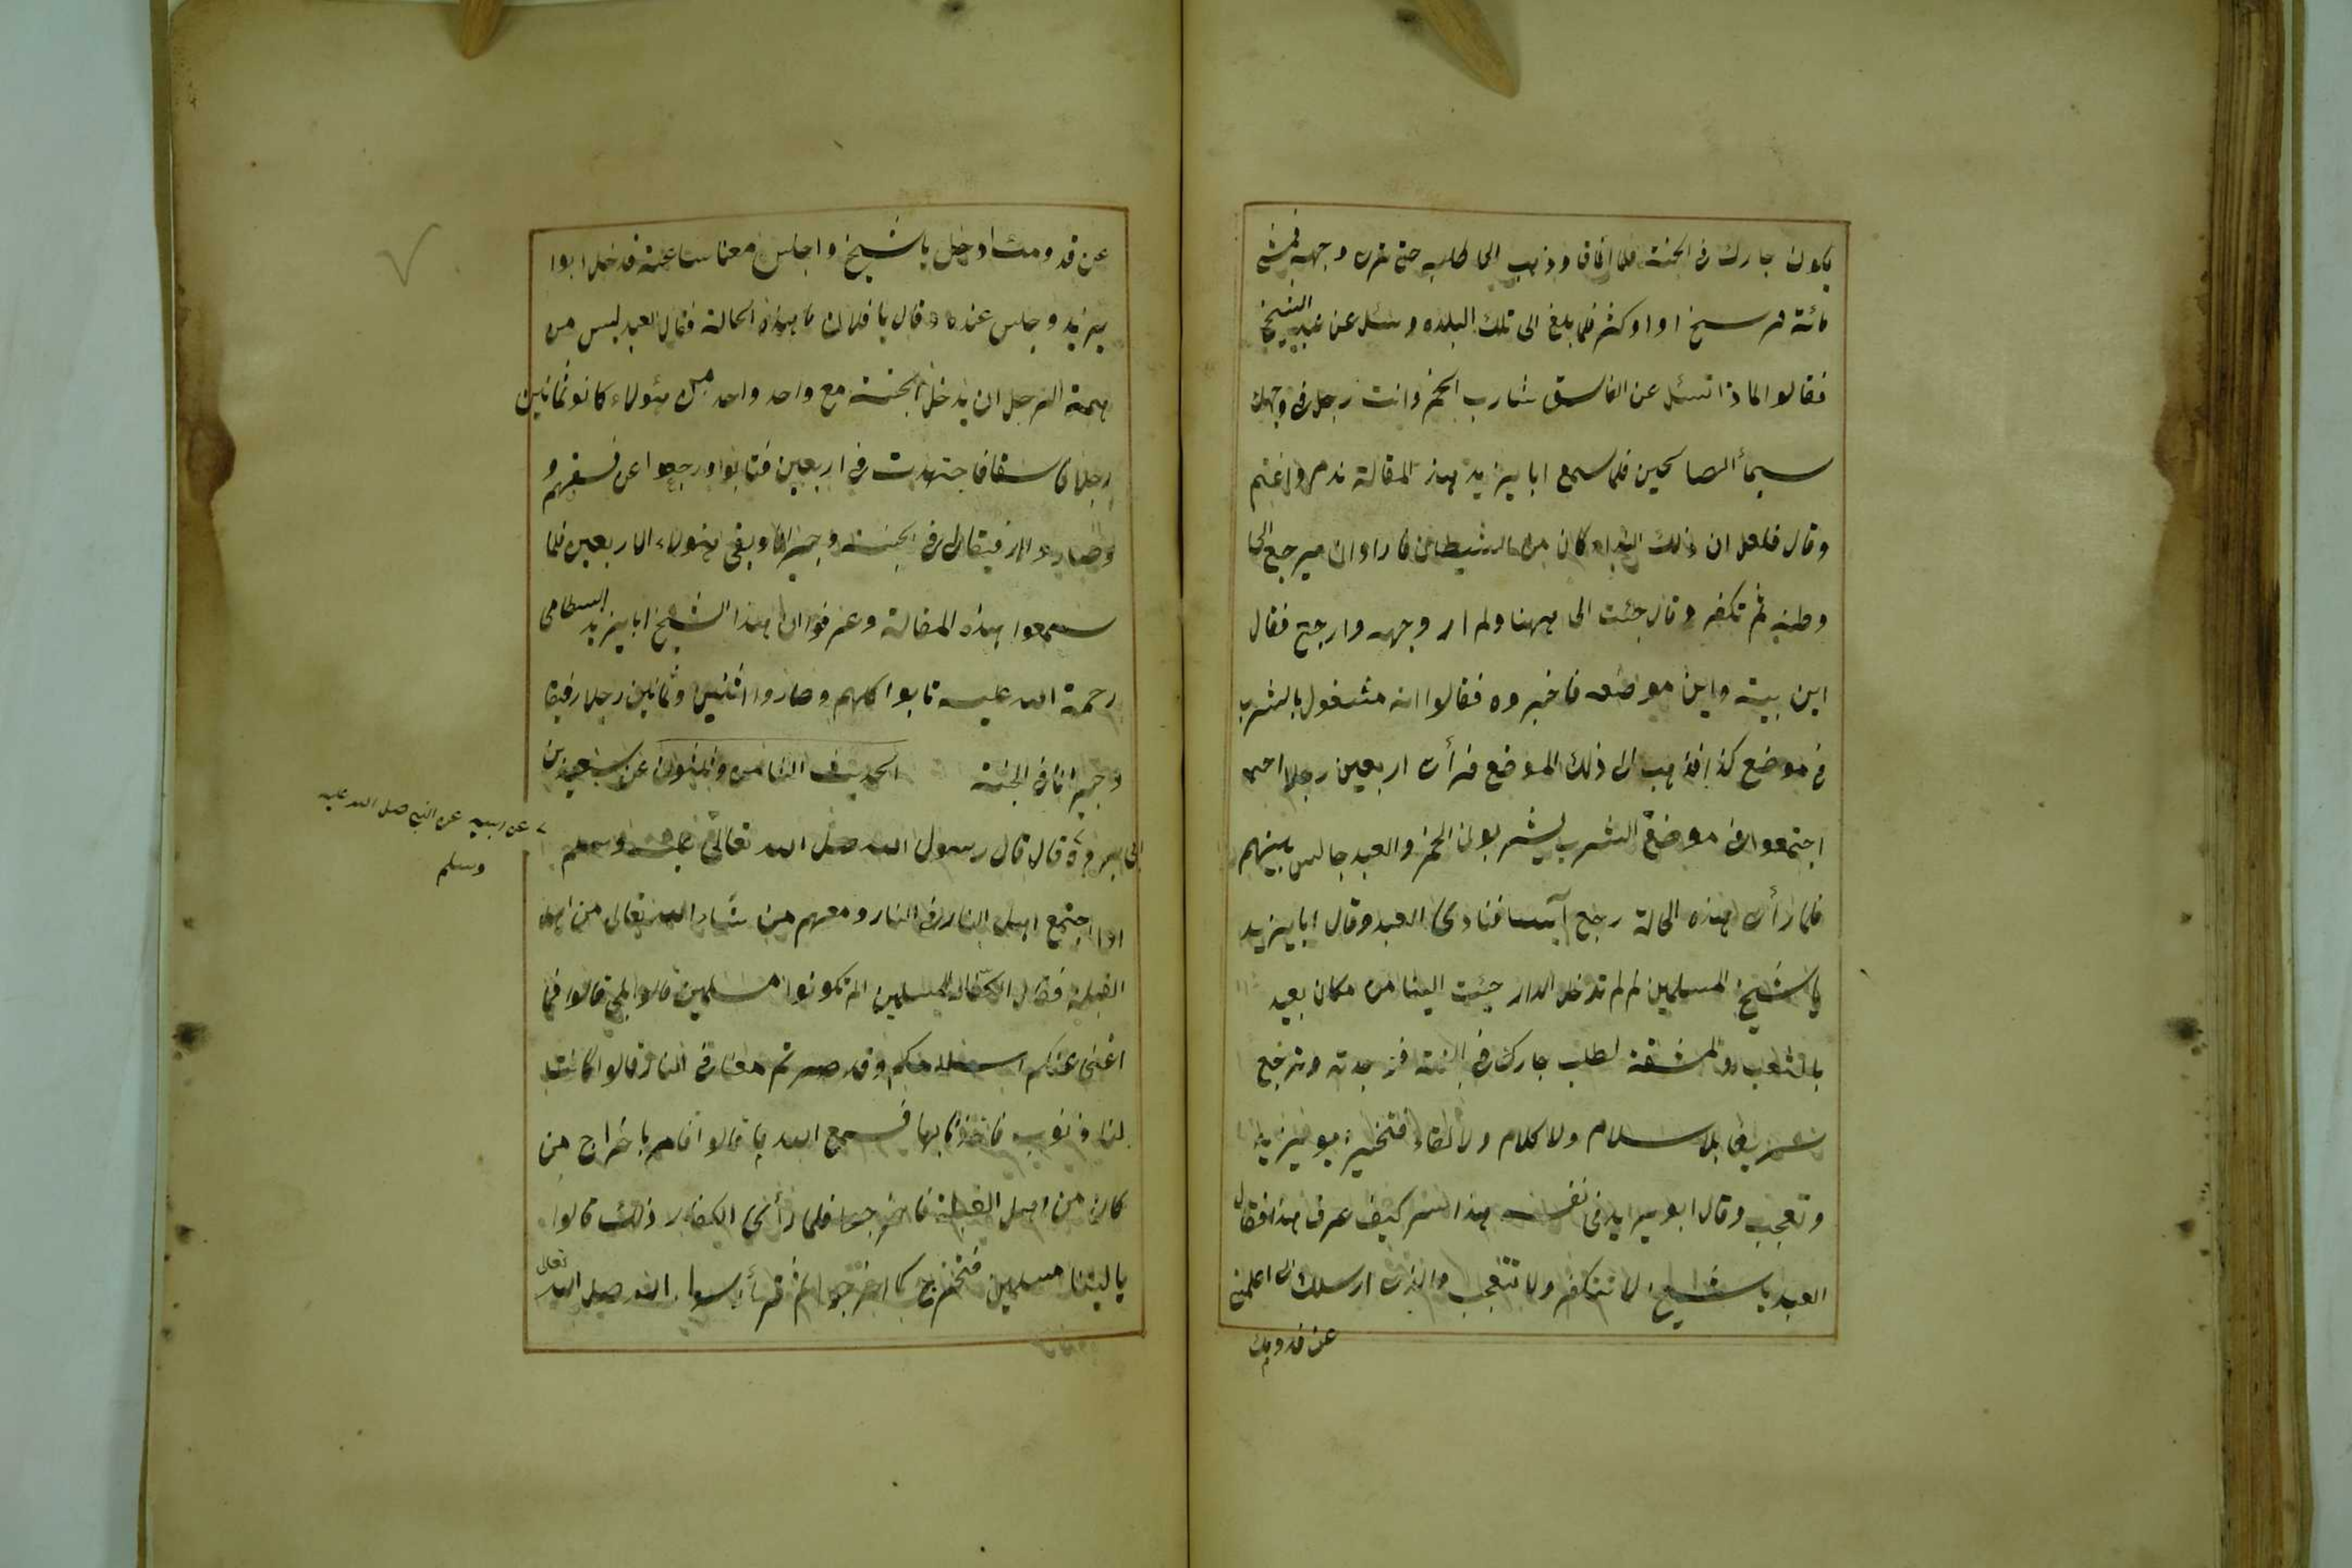 يكون جارك فى الجنة فلما أفاق وذهب الى طلبه حتى يرى وجهه فمشى
مائة فرسخ او اوكثر فلما بلغ الى تلك البلده وسئل عن عبد الشيخ
فقالوا لماذا تسئل عن الفاسق شارب الخمر وانت رجل فى وجهك
سيمأ الصالحين فلما سمع ابا يزيد هذ المقالة ندم واغتم
وقال فلعل ان ذلك النداء كان من الشيطان فاراد ان يرجع الى
وطنه ثم تكفر وقال جئت الى ههنا ولم ار وجهه وارجع فقال
اين بيته واين موضعه فاخبروه فقالوا انه مشغول بالشرب
فى موضع كذا فذهب الى ذلك الموضع فرأى اربعين رجلا
اجتمعوا فى موضع الشرب يشربون الخمر والعبد جالس بينهم
فلما رأى هذه الحالة رجع آيسا فنادى العبد وقال ابا يزيد
يا شيخ المسلمين لم لم تدخل الدار جئت الينا من مكان بعيد
بالتعب والمشقة لطلب جارك فى الجنة فوجدته وترجع
سريعا بلا سلام ولا كلام ولا لقاء فتحير بو يزيد
وتعجب وقال ابو يزيد فى نفسه هذا السر كيف عرف هذا فقال
العبد يا شيخ لا تتكفر ولا تتعجب والذى ارسلك الى اعلمنى
عن قدومك
عن قدومك ادخل يا شيخ واجلس معنا ساعة فدخل ابوا
يزيد وجلس عنده وقال يا فلان ما هذه الحالة فقال العبد ليس من
همة الرجل ان يدخل الجنة مع واحد واحد هؤلاء كانو ثمانين
رجلا فاسقا فاجتهدت فى اربعين فتابوا ورجعوا عن فسقهم و
وصاروا رفيقا لى فى الجنة وجيرانا وبقى هؤلاء الاربعين فلما
سمعوا هذه المقالة وعرفوا ان هذا الشيخ ابا يزيد البسطامى
رحمة الله عليه تابوا كلهم وصاروا اثنين وثمانين رجلا رفيقا
وجيرانا فى الجنة الحديث الثامن والثلثون عن سعيد بن
ابى بروة قال قال رسول الله صلى الله تعالى عليه وسلم
عن ابيه عن النبى صلى الله عليه
وسلم
اذا اجتمع اهل النار فى النار ومعهم من شاء الله تعالى من اهل
القبلة فقال الكفار للمسلمين الم تكونوا مسلمين قالوا بلى قالوا فما
اغنى عنكم اسلامكم وقد صرتم معنا فى النار قالوا كانت
لنا ذنوب فاخذنا بها فسمع الله ما قالوا فامر باخراج من
كان من اهل القبلة فاخرجوا فلما رأى الكفار ذلك قالوا
يا ليتنا مسلمين فنخرج كما اخرجوا ثم قرأ رسول الله صلى الله تعالى